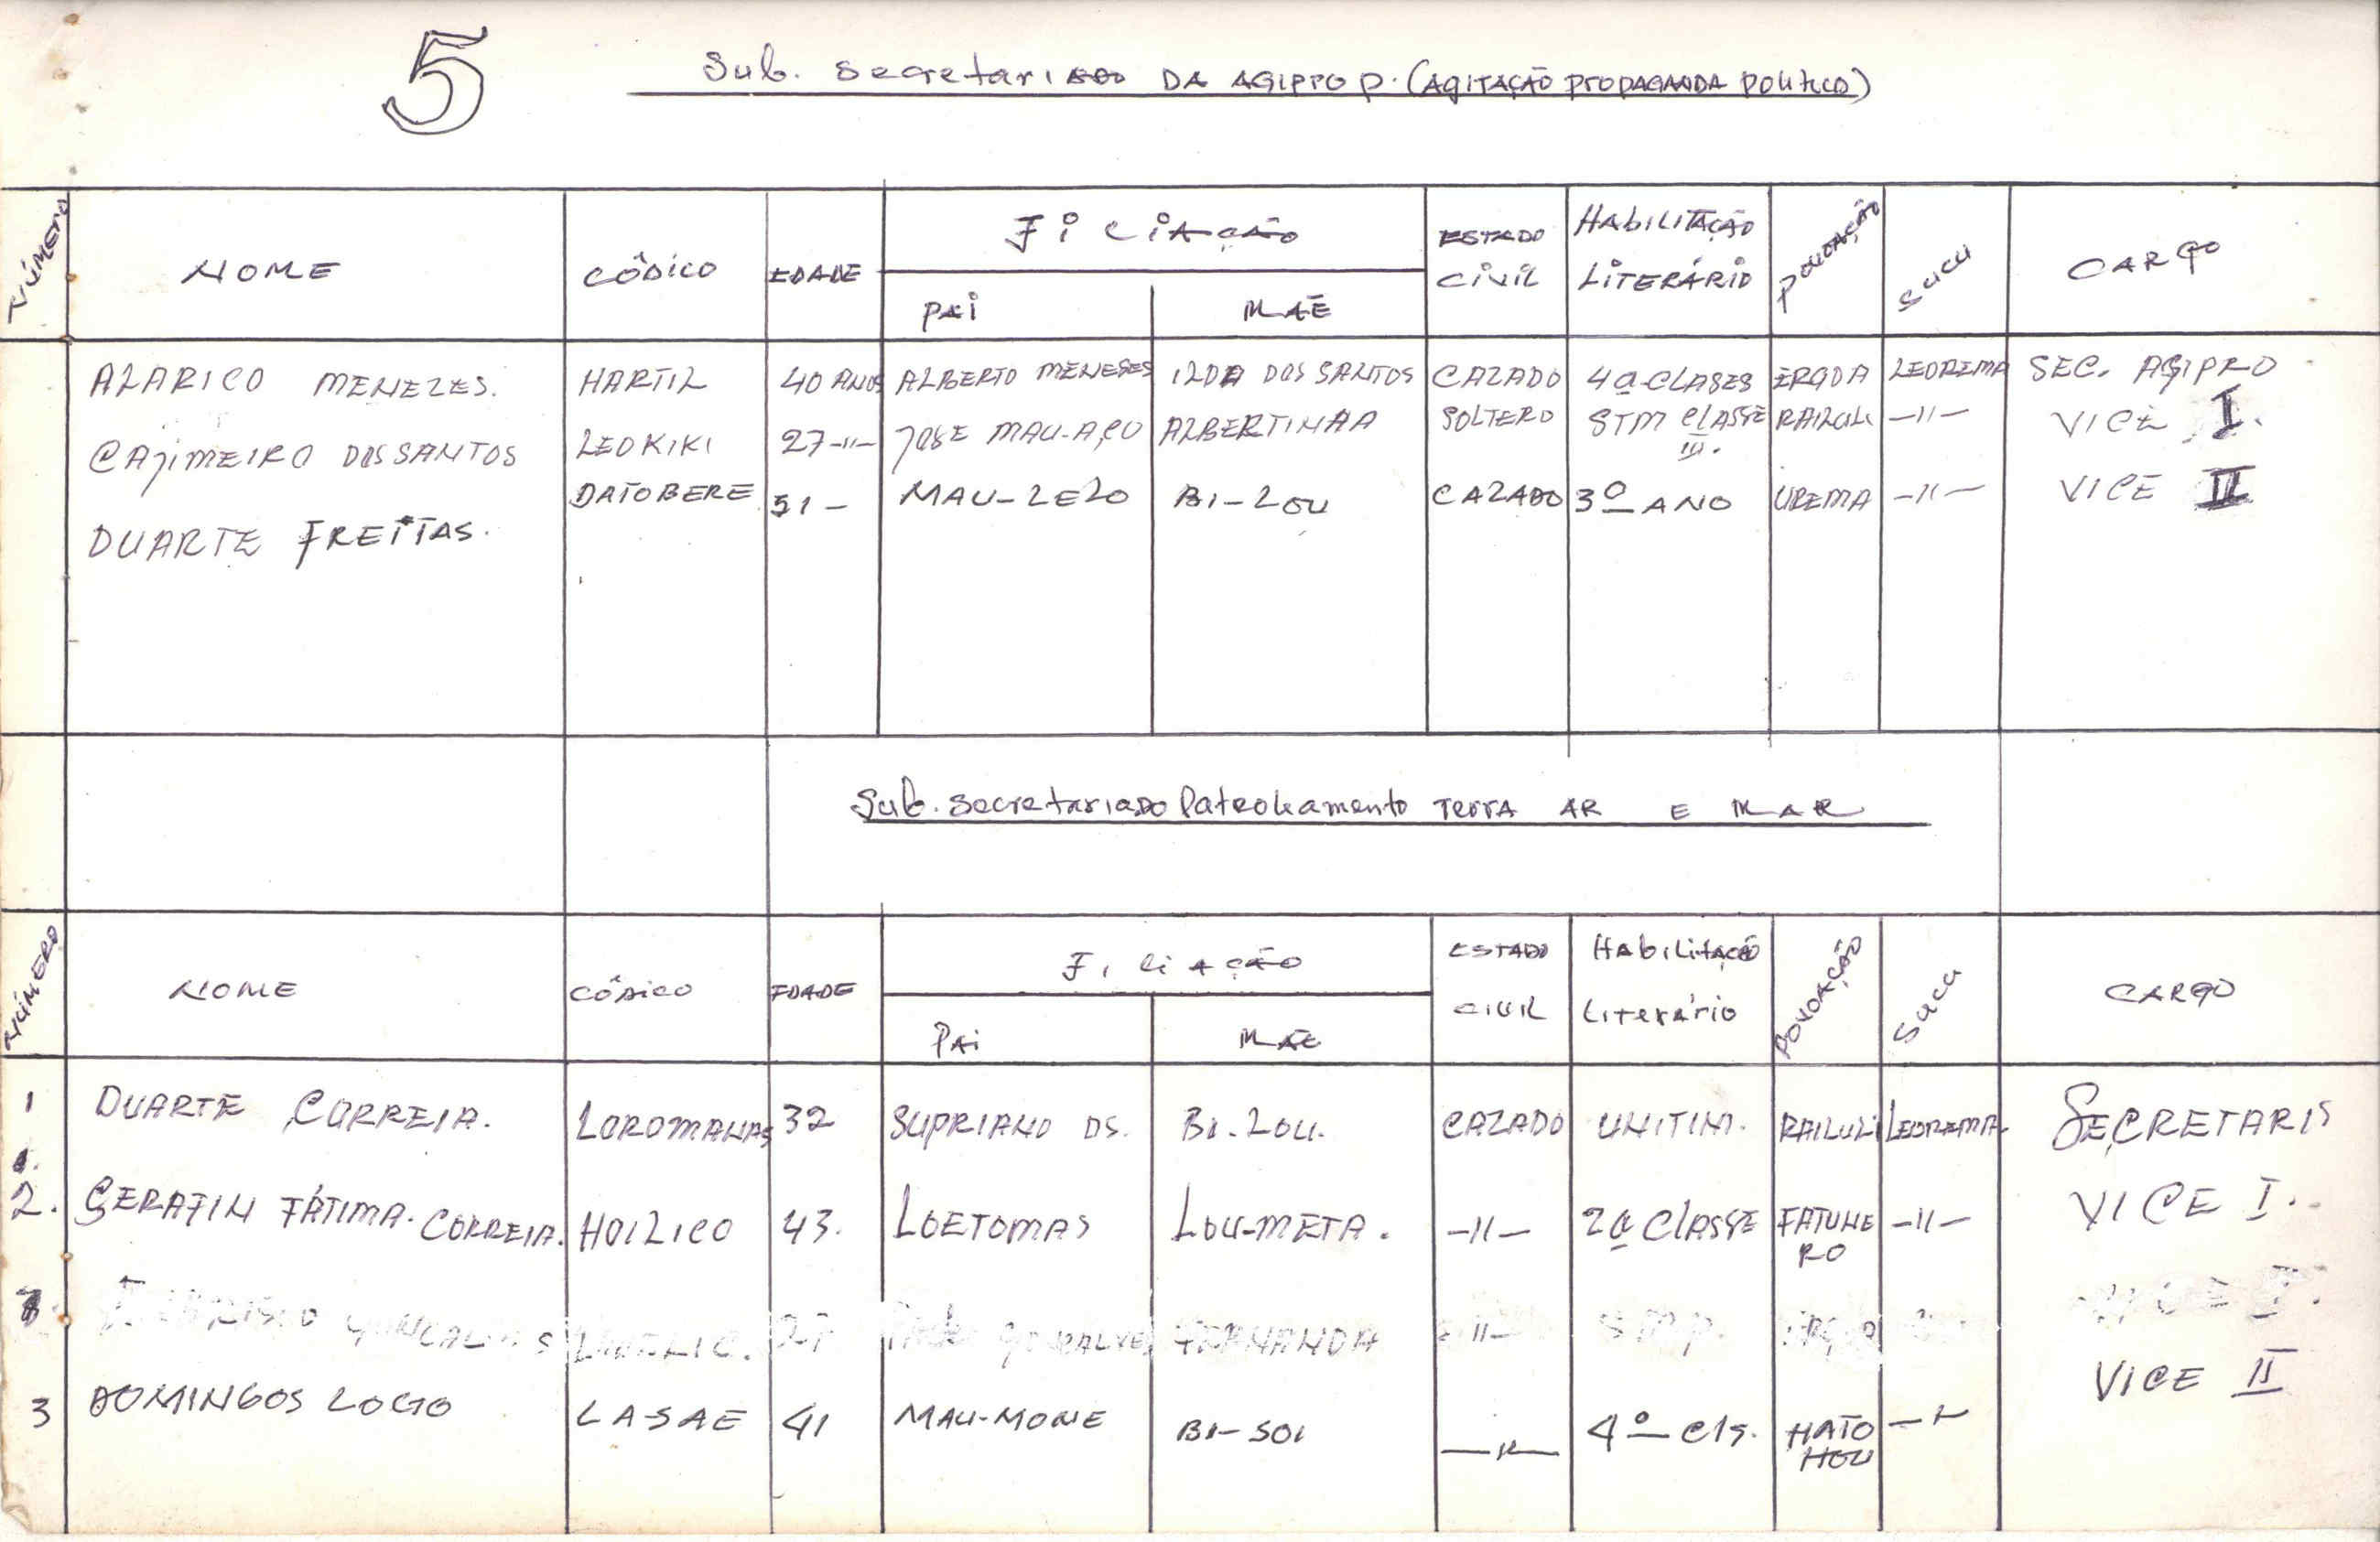 5
Sub. Secretariado DA AGIPROP. (AGITAÇÃO PROPAGANDA POLITICO)
NÚMERO NOME CÔDICO EDADE FiLIAÇÃO ESTADO CIVIL HABILITAÇÃO LITERÁRIO POVOAÇÃO SUCU CARGO
PAI MÃE
ALARICO MENEZES. HARTIL 40 ANOS ALBERTO MENESES ILDA DOS SANTOS CAZADO 4ª CLASES ERGOA LEOREMA SEC. AGIPRO
CAJIMEIRO DOS SANTOS LEOKIKI 27 -"- JOSE MAU-AÇU ALBERTINHA SOLTERO STM CLASSE III. RAILULI -"- VICE I.
DUARTE FREITAS. DATOBERE 31 - MAU-LELO BI-LOU CAZADO 3º ANO UREMA -"- VICE II
Sub. Secretariado Patrolhamento TERRA AR E MAR
NÚMERO NOME CÔDICO EDADE FILIAÇÃO ESTADO CIVIL HABILITAÇÃO LITERÁRIO POVOAÇÃO SUCU CARGO
PAI MÃE
1 DUARTE CORREIA. LOROMANAS 32 SUPRIANO DS. BI-LOU. CAZADO UNITIM. RAILULI LEOREMA- SECRETARIS
2. SERAFIN FÁTIMA. CORREIA. HOILICO 43. LOETOMAS LOU-META. -"- 2ª CLASSE FATUNERO -"- VICE I.
FERNANDA -"-
3 DOMINGOS LOGO LASAE 41 MAU-MONE BI-SOI -"- 4º cls. HATO HOU -"- VICE II